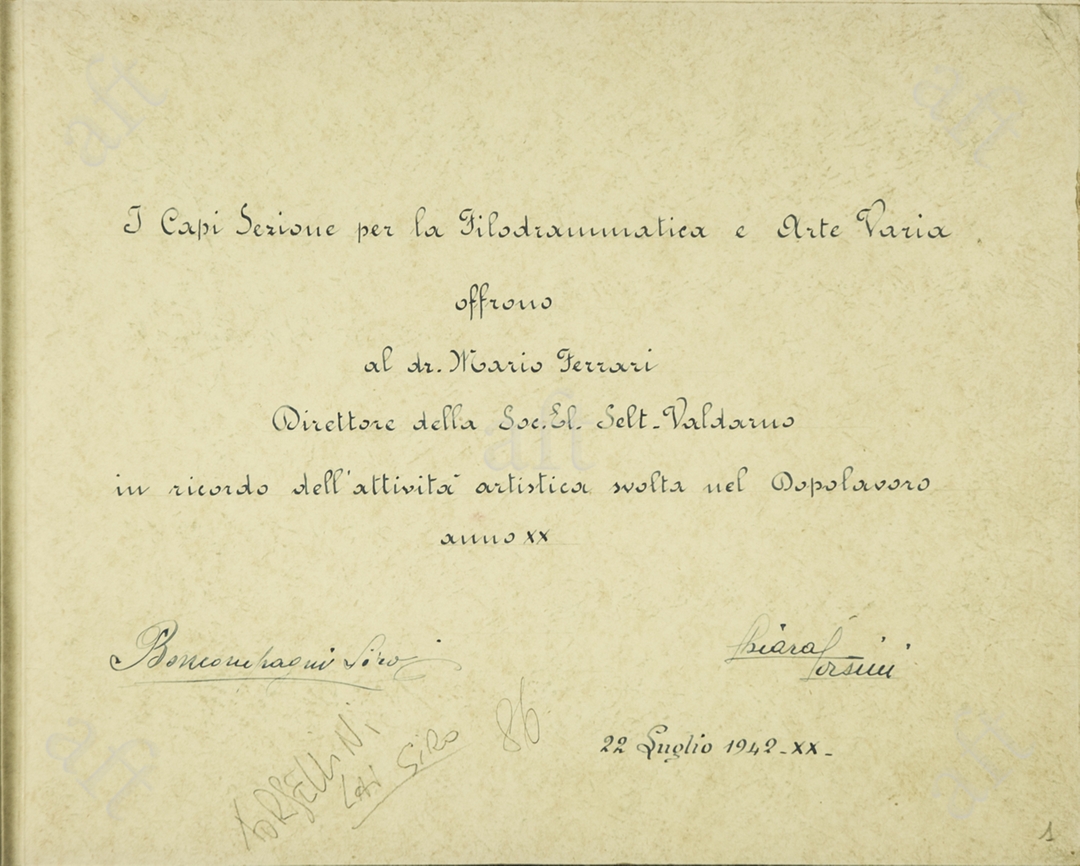 I Capi Sezione per la Filodrammatica e Arte Varia
offrono
al dr. Mario Ferrari
Direttore della Soc. El. Selt-Valdarno
in ricordo dell'attività artistica svolta nel Dopolavoro
anno XX
Boncompagni Siro
Chiara Corsini
22 Luglio 1942-XX-
Siro
86
1
aft
aft
aft
aft
aft